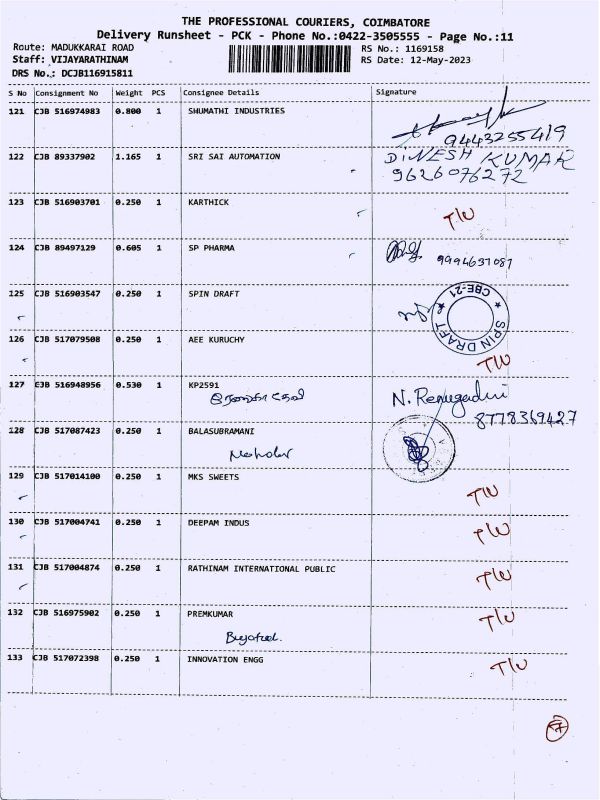 THE PROFESSIONAL COURIERS, COIMBATORE
Delivery Runsheet - PCK - Phone No.:0422-3505555 - Page No.:11
Route: MADUKKARAI ROAD RS No.: 1169158
Staff: VIJAYARATHINAM RS Date: 12-May-2023
DRS No.: DCJB116915811
S No Consignment No Weight PCS Consignee Details Signature
121 CJB 516974983 0.800 1 SHUMATHI INDUSTRIES
9443255419
122 CJB 89337902 1.165 1 SRI SAI AUTOMATION DINESH KUMAR
9626076272
123 CJB 516903701 0.250 1 KARTHICK T/U
124 CJB 89497129 0.605 1 SP PHARMA 9994637087
125 CJB 516903547 0.250 1 SPIN DRAFT SPIN DRAFT ★ CBE-21 ★
126 CJB 517079508 0.250 1 AEE KURUCHY T/U
127 EJB 516948956 0.530 1 KP2591 N. Renugadevi
8778369427
128 CJB 517087423 0.250 1 BALASUBRAMANI
129 CJB 517014100 0.250 1 MKS SWEETS T/U
130 CJB 517004741 0.250 1 DEEPAM INDUS T/U
131 CJB 517004874 0.250 1 RATHINAM INTERNATIONAL PUBLIC T/U
132 CJB 516975902 0.250 1 PREMKUMAR T/U
133 CJB 517072398 0.250 1 INNOVATION ENGG T/U